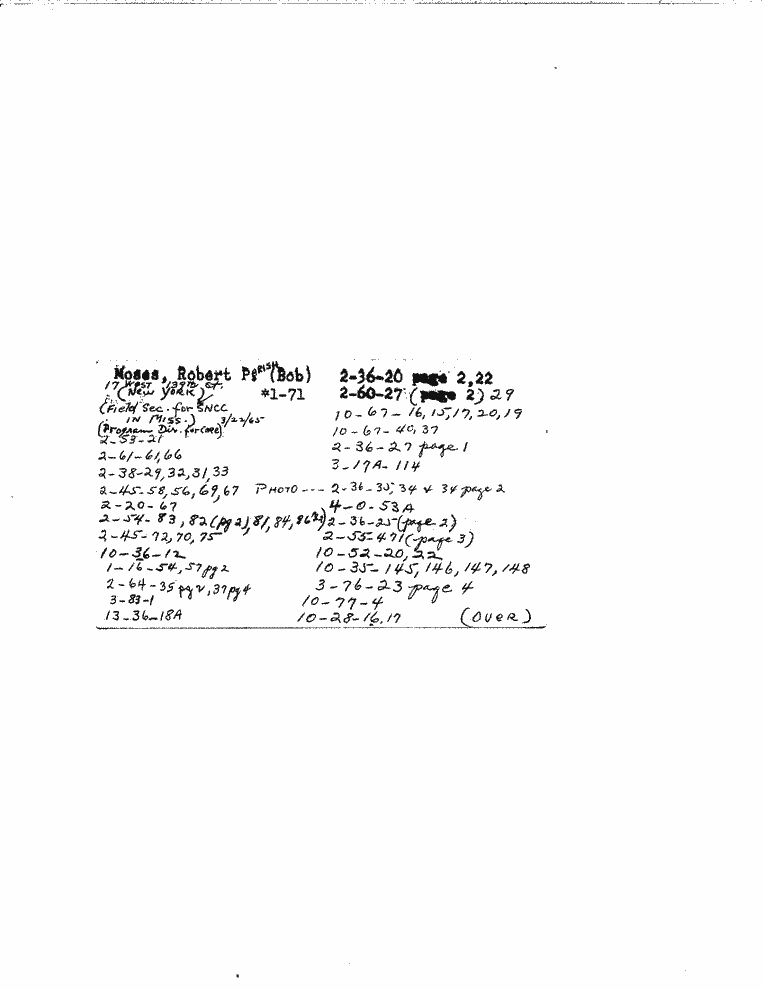 Moses, Robert Parrish (Bob)
17 West 139th St.
(New York) *1-71
(Field Sec. for SNCC
in Miss.) 3/22/65
(Program Dir. for CORE)
2-59-21
2-61-61,66
2-38-29,32,31,33
2-45-58,56,69,67
2-20-67
2-54-83,82(pg 2),81,84,86
2-45-72,70,75
10-36-12
1-16-54,57pg2
2-64-35 pg 2,37pg4
3-83-1
13-36-18A
2-36-20 page 2,22
2-60-27 (page 2) 29
10-67-16,15,17,20,19
10-67-40,37
2-36-27 page 1
3-17A-114
PHOTO --- 2-36-35,34 & 34 page 2
4-0-53A
2-36-25(page 2)
2-55-471(page 3)
10-52-20,22
10-35-145,146,147,148
3-76-23 page 4
10-77-4
10-28-16,17 (OVER)